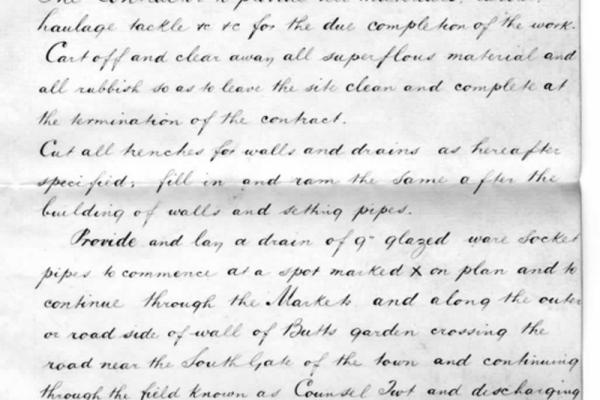 The Contractor to provide all materials, labour,
haulage tackle &c &c for the due completion of the work.
Cart off and clear away all superflous material and
all rubbish so as to leave the site clean and complete at
the termination of the contract.
Cut all trenches for walls and drains as hereafter
specified; fill in and ram the same after the
building of walls and setting pipes.
Provide and lay a drain of 9" glazed ware socket
pipes to commence at a spot marked X on plan and to
continue through the Markets and along the outer
or road side of wall of Butts garden crossing the
road near the South Gate of the town and continuing
through the field known as Counsel and discharging